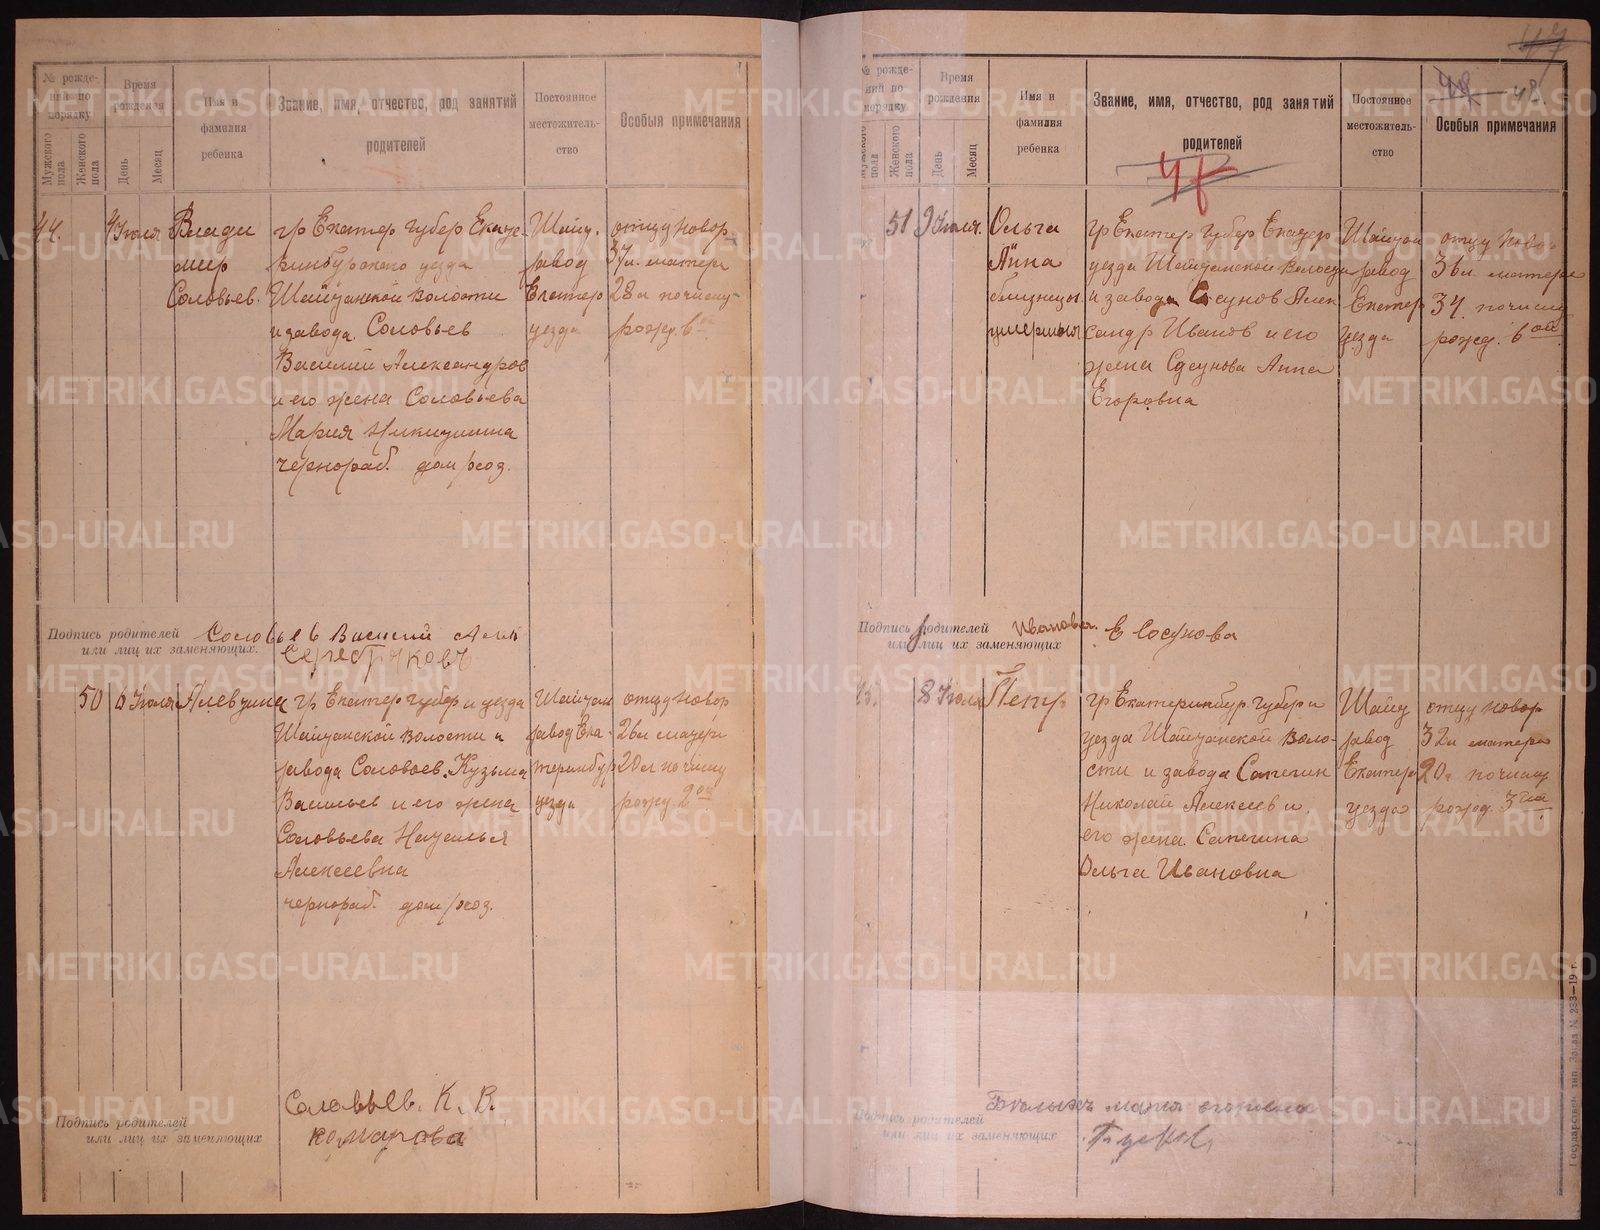 № рожде-
ний по
порядку
Мужского
пола
Женского
пола
Время
рождения
День
Месяц
Имя и
фамилия
ребенка
Звание, имя, отчество, род занятий
родителей
Постоянное
местожитель-
ство
Особыя примечания
44.
4 Июля
Влади
мир
Соловьев.
гр Екатер губер Екате-
ринбургского уезда
Шайтанской волости
и завода Соловьев
Василий Александров
и его жена Соловьева
Мария Никитишна
чернораб. дом/хоз.
Шайт.
завод
Екатер
уезда
отцу новор
37л. матери
28л по числу
рожд. 6ой
Подпись родителей
или лиц их заменяющих.
Соловьев Василий Алек
Серебряковъ
50
6 Июля
Алевтина
гр Екатер губер и уезда
Шайтанской волости и
завода Соловьев. Кузьма
Васильев и его жена
Соловьева Наталья
Алексеевна
чернораб. дом/хоз.
Шайтан
завод Ека-
теринбур
уезда
отцу новор
26л матери
20л по числу
рожд 2ой
Подпись родителей
или лиц их заменяющих
Соловьев. К. В.
Комарова
47
48.
№ рожде-
ний по
порядку
Мужского
пола
Женского
пола
Время
рождения
День
Месяц
Имя и
фамилия
ребенка
Звание, имя, отчество, род занятий
родителей
Постоянное
местожитель-
ство
Особыя примечания
51
9 Июля.
Ольга
Анна
близнецы
умершыя
гр Екатер губер Екатер
уезда Шайтанской волости
и завода Сосунов Алек
сандр Иванов и его
жена Сосунова Анна
Егоровна
Шайтан
завод
Екатер
уезда
отцу ново-
36л матери
34. по числу
рожд. 6ой
Подпись родителей
или лиц их заменяющих
Иванова.
Е Сосунова
8 Июля
Петр
гр Екатеринбур губер и
уезда Шайтанской воло-
сти и завода Сапегин
Николай Алексеев и
его жена Сапегина
Ольга Ивановна
Шайт
завод
Екатер
уезда
отцу новор
32л матери
20г. по числу
рожд. 3ий
Подпись родителей
или лиц их заменяющих
мария егоровна
Государствен. тип. Заказ N. 233—19 г.
METRIKI.GASO-URAL.RU